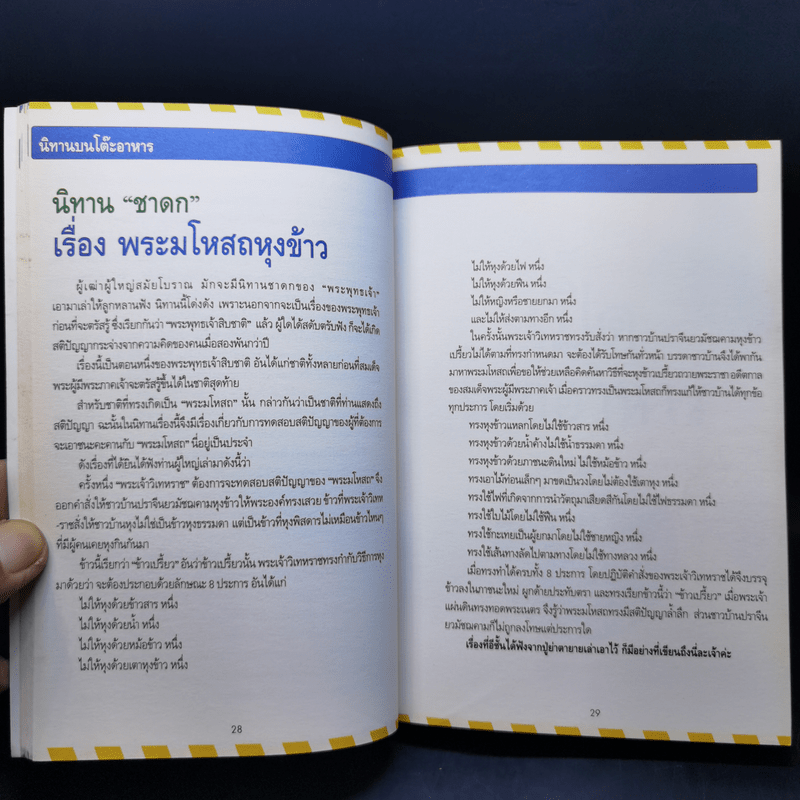 นิทานบนโต๊ะอาหาร
นิทาน “ชาดก”
เรื่อง พระมโหสถหุงข้าว
ผู้เฒ่าผู้ใหญ่สมัยโบราณ มักจะมีนิทานชาดกของ “พระพุทธเจ้า”
เอามาเล่าให้ลูกหลานฟัง นิทานนี้โด่งดัง เพราะนอกจากจะเป็นเรื่องของพระพุทธเจ้า
ก่อนที่จะตรัสรู้ ซึ่งเรียกกันว่า “พระพุทธเจ้าสิบชาติ” แล้ว ผู้ใดได้สดับตรับฟัง ก็จะได้เกิด
สติปัญญากระจ่างจากความคิดของคนเมื่อสองพันกว่าปี
เรื่องนี้เป็นตอนหนึ่งของพระพุทธเจ้าสิบชาติ อันได้แก่ชาติทั้งหลายก่อนที่สมเด็จ
พระผู้มีพระภาคเจ้าจะตรัสรู้ขึ้นได้ในชาติสุดท้าย
สำหรับชาติที่ทรงเกิดเป็น “พระมโหสถ” นั้น กล่าวกันว่าเป็นชาติที่ท่านแสดงถึง
สติปัญญา ฉะนั้นในนิทานเรื่องนี้จึงมีเรื่องเกี่ยวกับการทดสอบสติปัญญาของผู้ที่ต้องการ
จะเอาชนะคะคานกับ “พระมโหสถ” นี่อยู่เป็นประจำ
ดังเรื่องที่ได้ยินได้ฟังท่านผู้ใหญ่เล่ามาดังนี้ว่า
ครั้งหนึ่ง “พระเจ้าวิเทหราช” ต้องการจะทดสอบสติปัญญาของ “พระมโหสถ” จึง
ออกคำสั่งให้ชาวบ้านปราจีนยวมัชฌคามหุงข้าวให้พระองค์ทรงเสวย ข้าวที่พระเจ้าวิเทห
-ราชสั่งให้ชาวบ้านหุงไม่ใช่เป็นข้าวหุงธรรมดา แต่เป็นข้าวที่หุงพิสดารไม่เหมือนข้าวไหนๆ
ที่มีผู้คนเคยหุงกินกันมา
ข้าวนี้เรียกว่า “ข้าวเปรี้ยว” อันว่าข้าวเปรี้ยวนั้น พระเจ้าวิเทหราชทรงกำกับวิธีการหุง
มาด้วยว่า จะต้องประกอบด้วยลักษณะ 8 ประการ อันได้แก่
ไม่ให้หุงด้วยข้าวสาร หนึ่ง
ไม่ให้หุงด้วยน้ำ หนึ่ง
ไม่ให้หุงด้วยหม้อข้าว หนึ่ง
ไม่ให้หุงด้วยเตาหุงข้าว หนึ่ง
28
ไม่ให้หุงด้วยไฟ หนึ่ง
ไม่ให้หุงด้วยฟืน หนึ่ง
ไม่ให้หญิงหรือชายยกมา หนึ่ง
และไม่ให้ส่งตามทางอีก หนึ่ง
ในครั้งนั้นพระเจ้าวิเทหราชทรงรับสั่งว่า หากชาวบ้านปราจีนยวมัชฌคามหุงข้าว
เปรี้ยวไม่ได้ตามที่ทรงกำหนดมา จะต้องได้รับโทษกันทั่วหน้า บรรดาชาวบ้านจึงได้พากัน
มาหาพระมโหสถเพื่อขอให้ช่วยเหลือคิดค้นหาวิธีที่จะหุงข้าวเปรี้ยวถวายพระราชา อดีตกาล
ของสมเด็จพระผู้มีพระภาคเจ้า เมื่อคราวทรงเป็นพระมโหสถก็ทรงแก้ให้ชาวบ้านได้ทุกข้อ
ทุกประการ โดยเริ่มด้วย
ทรงหุงข้าวแหลกโดยไม่ใช้ข้าวสาร หนึ่ง
ทรงหุงข้าวด้วยน้ำค้างไม่ใช้น้ำธรรมดา หนึ่ง
ทรงหุงข้าวด้วยภาชนะดินใหม่ ไม่ใช้หม้อข้าว หนึ่ง
ทรงเอาไม้ท่อนเล็กๆ มาขดเป็นวงโดยไม่ต้องใช้เตาหุง หนึ่ง
ทรงใช้ไฟที่เกิดจากการนำวัตถุมาเสียดสีกันโดยไม่ใช้ไฟธรรมดา หนึ่ง
ทรงใช้ใบไม้โดยไม่ใช้ฟืน หนึ่ง
ทรงใช้กะเทยเป็นผู้ยกมาโดยไม่ใช้ชายหญิง หนึ่ง
ทรงใช้เส้นทางลัดไปตามทางโดยไม่ใช้ทางหลวง หนึ่ง
เมื่อทรงทำได้ครบทั้ง 8 ประการ โดยปฏิบัติคำสั่งของพระเจ้าวิเทหราชได้จึงบรรจุ
ข้าวลงในภาชนะใหม่ ผูกด้วยประทับตรา และทรงเรียกข้าวนี้ว่า “ข้าวเปรี้ยว” เมื่อพระเจ้า
แผ่นดินทรงทอดพระเนตร จึงรู้ว่าพระมโหสถทรงมีสติปัญญาล้ำลึก ส่วนชาวบ้านปราจีน
ยวมัชฌคามก็ไม่ถูกลงโทษแต่ประการใด
เรื่องที่อีชั้นได้ฟังจากปู่ย่าตายายเล่าเอาไว้ ก็มีอย่างที่เขียนถึงนี่ละเจ้าค่ะ
29